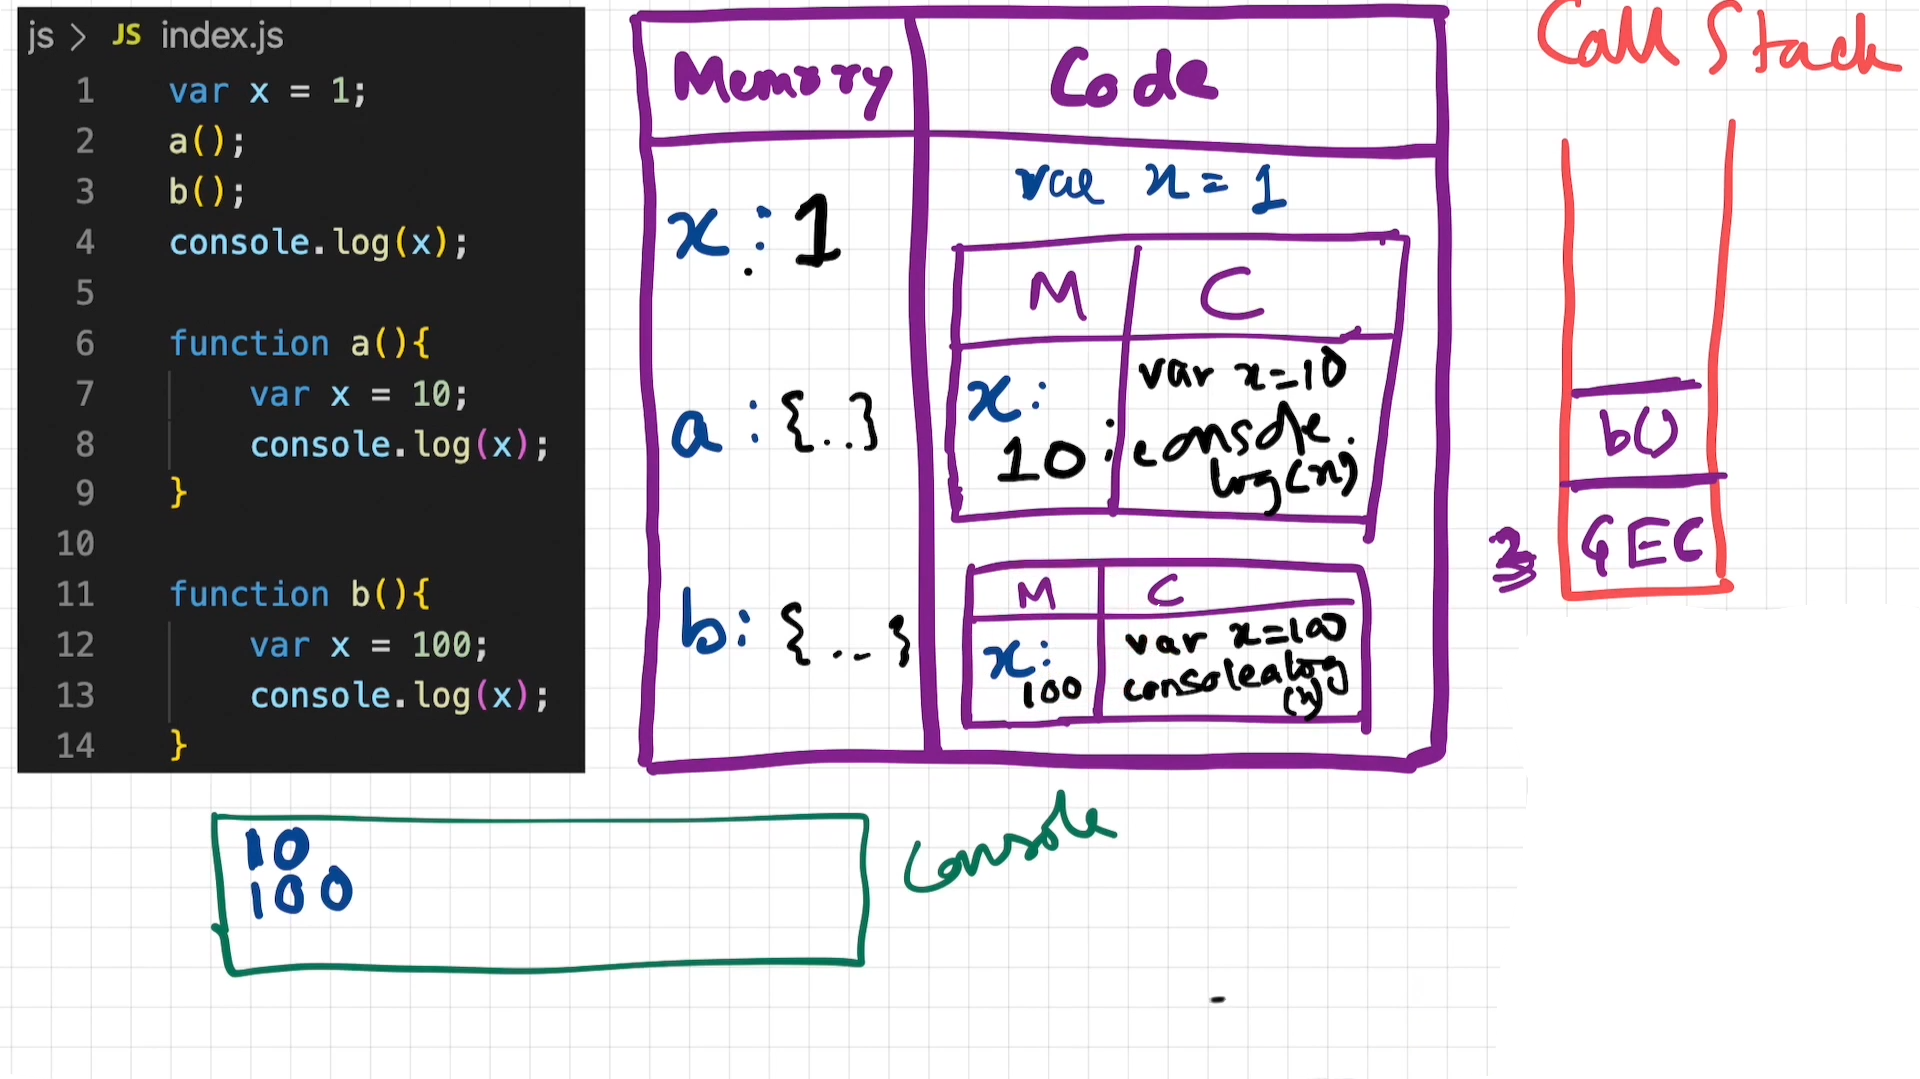 js > JS index.js
1 var x = 1;
2 a();
3 b();
4 console.log(x);
5
6 function a(){
7 var x = 10;
8 console.log(x);
9 }
10
11 function b(){
12 var x = 100;
13 console.log(x);
14 }
Memory
Code
x : 1
a : {..}
b : {...}
var x = 1
M
C
x:
10
var x=10
;console.
log(x)
M
C
x:
100
var x=100
console.log
(x)
Call Stack
b()
GEC
10
100
Console